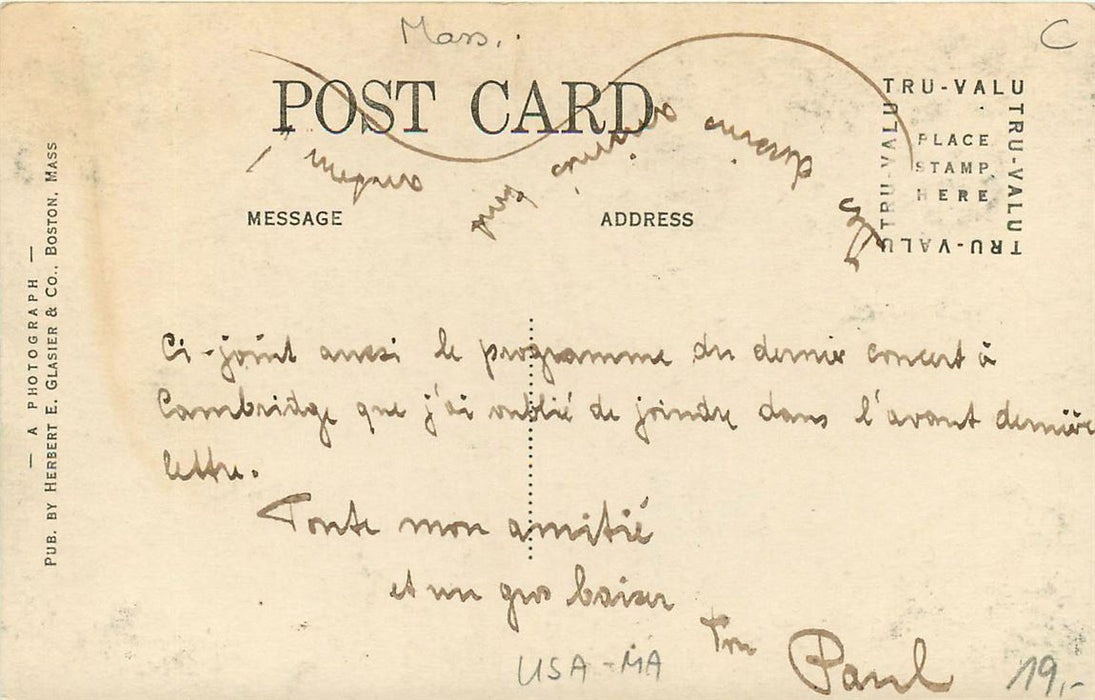 Mass.
C
POST CARD
TRU-VALU
TRU-VALU
TRU-VALU
TRU-VALU
PLACE
STAMP
HERE
MESSAGE
ADDRESS
— A PHOTOGRAPH —
PUB. BY HERBERT E. GLASIER & CO., BOSTON, MASS
Ci-joint aussi le programme du dernier concert à
Cambridge que j'ai oublié de joindre dans l'avant dernière
lettre.
Toute mon amitié
et un gros baiser
Ton
Paul
USA-MA
19,-